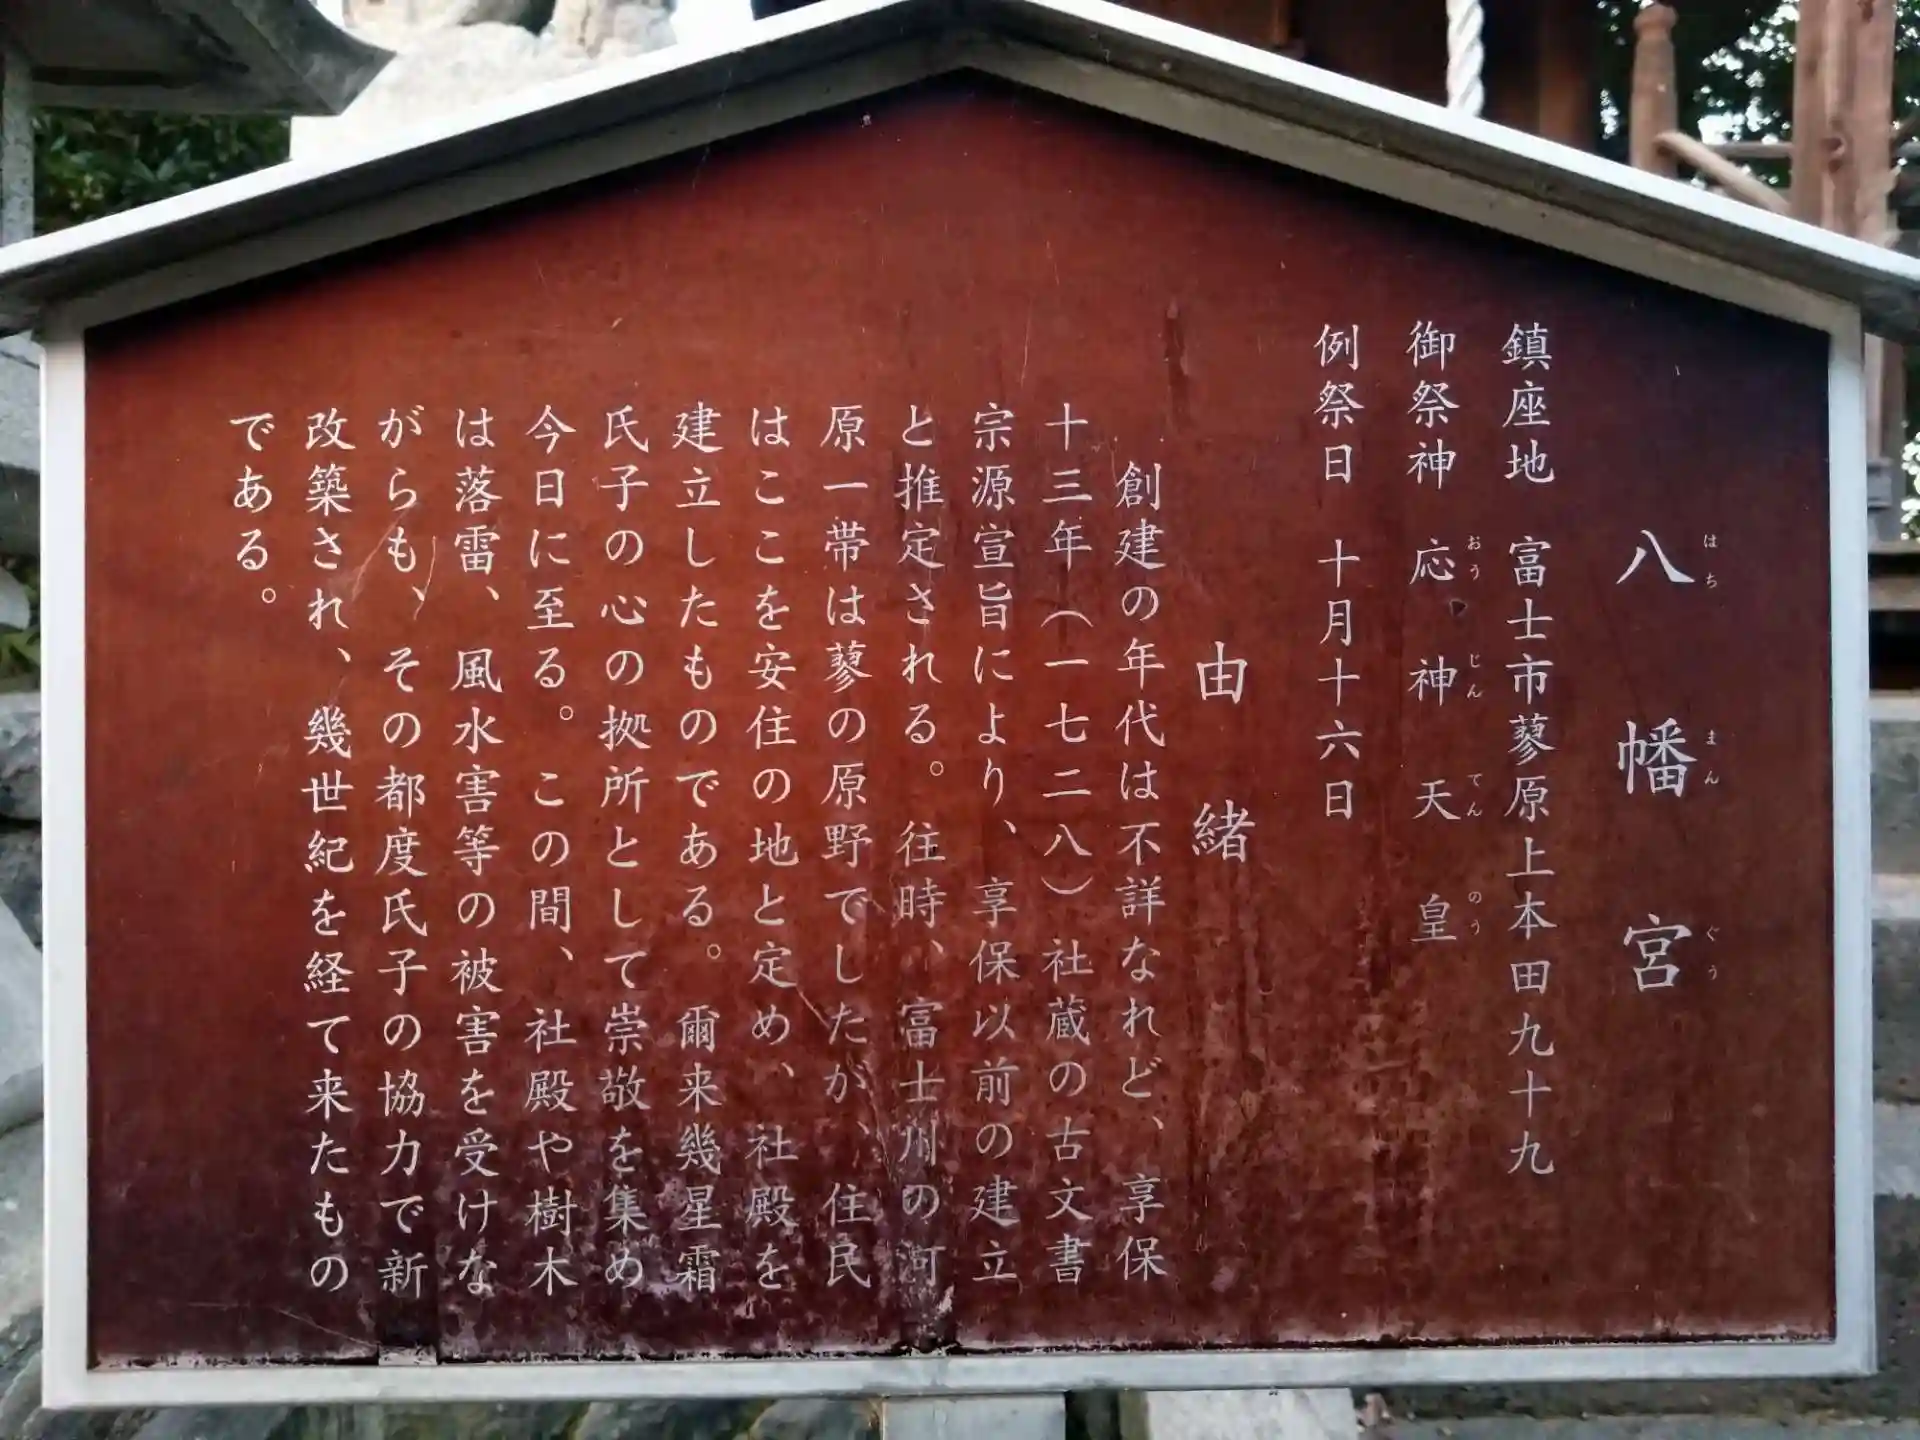 八幡宮
はちまんぐう
鎮座地 富士市蓼原上本田九十九
御祭神 応神天皇
おうじんてんのう
例祭日 十月十六日
由緒
創建の年代は不詳なれど、享保
十三年（一七二八）社蔵の古文書
宗源宣旨により、享保以前の建立
と推定される。往時、富士川の河
原一帯は蓼の原野でしたが、住民
はここを安住の地と定め、社殿を
建立したものである。爾来幾星霜
氏子の心の拠所として崇敬を集め
今日に至る。この間、社殿や樹木
は落雷、風水害等の被害を受けな
がらも、その都度氏子の協力で新
改築され、幾世紀を経て来たもの
である。